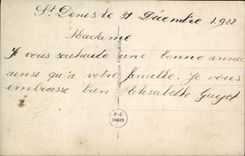 St Denis le 31 Décembre 1922
Madame
Je vous souhaite une bonne année
ainsi qu'à votre famille. Je vous
embrasse bien Elisabeth Guyot